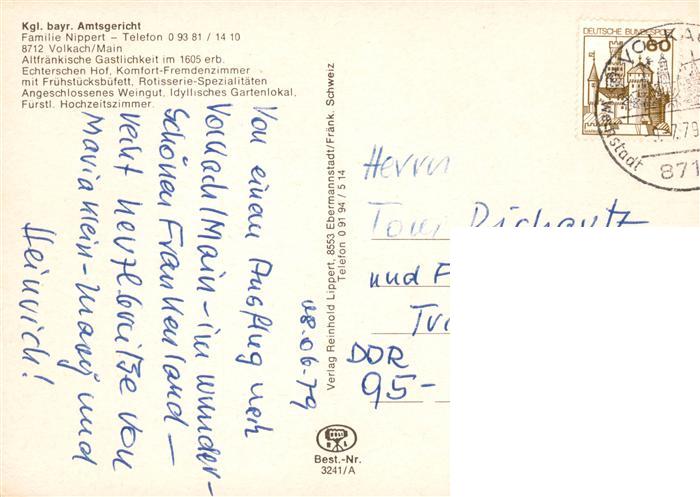 Kgl. bayr. Amtsgericht
Familie Nippert – Telefon 0 93 81 / 14 10
8712 Volkach/Main
Altfränkische Gastlichkeit im 1605 erb.
Echterschen Hof, Komfort-Fremdenzimmer
mit Frühstücksbüfett, Rotisserie-Spezialitäten
Angeschlossenes Weingut, Idyllisches Gartenlokal,
Fürstl. Hochzeitszimmer.
08.06.79
Von einem Ausflug nach
Volkach/Main – im wunder-
schönen Frankenland –
recht herzl. Grüße von
Maria Klein-Mary und
Heinrich!
Verlag Reinhold Lippert, 8553 Ebermannstadt/Fränk. Schweiz
Telefon 0 91 94 / 5 14
Best.-Nr.
3241/A
DEUTSCHE BUNDESPOST
60
VOLKA
Weinstadt
7.79
871
Herrn
und F
DDR
95-